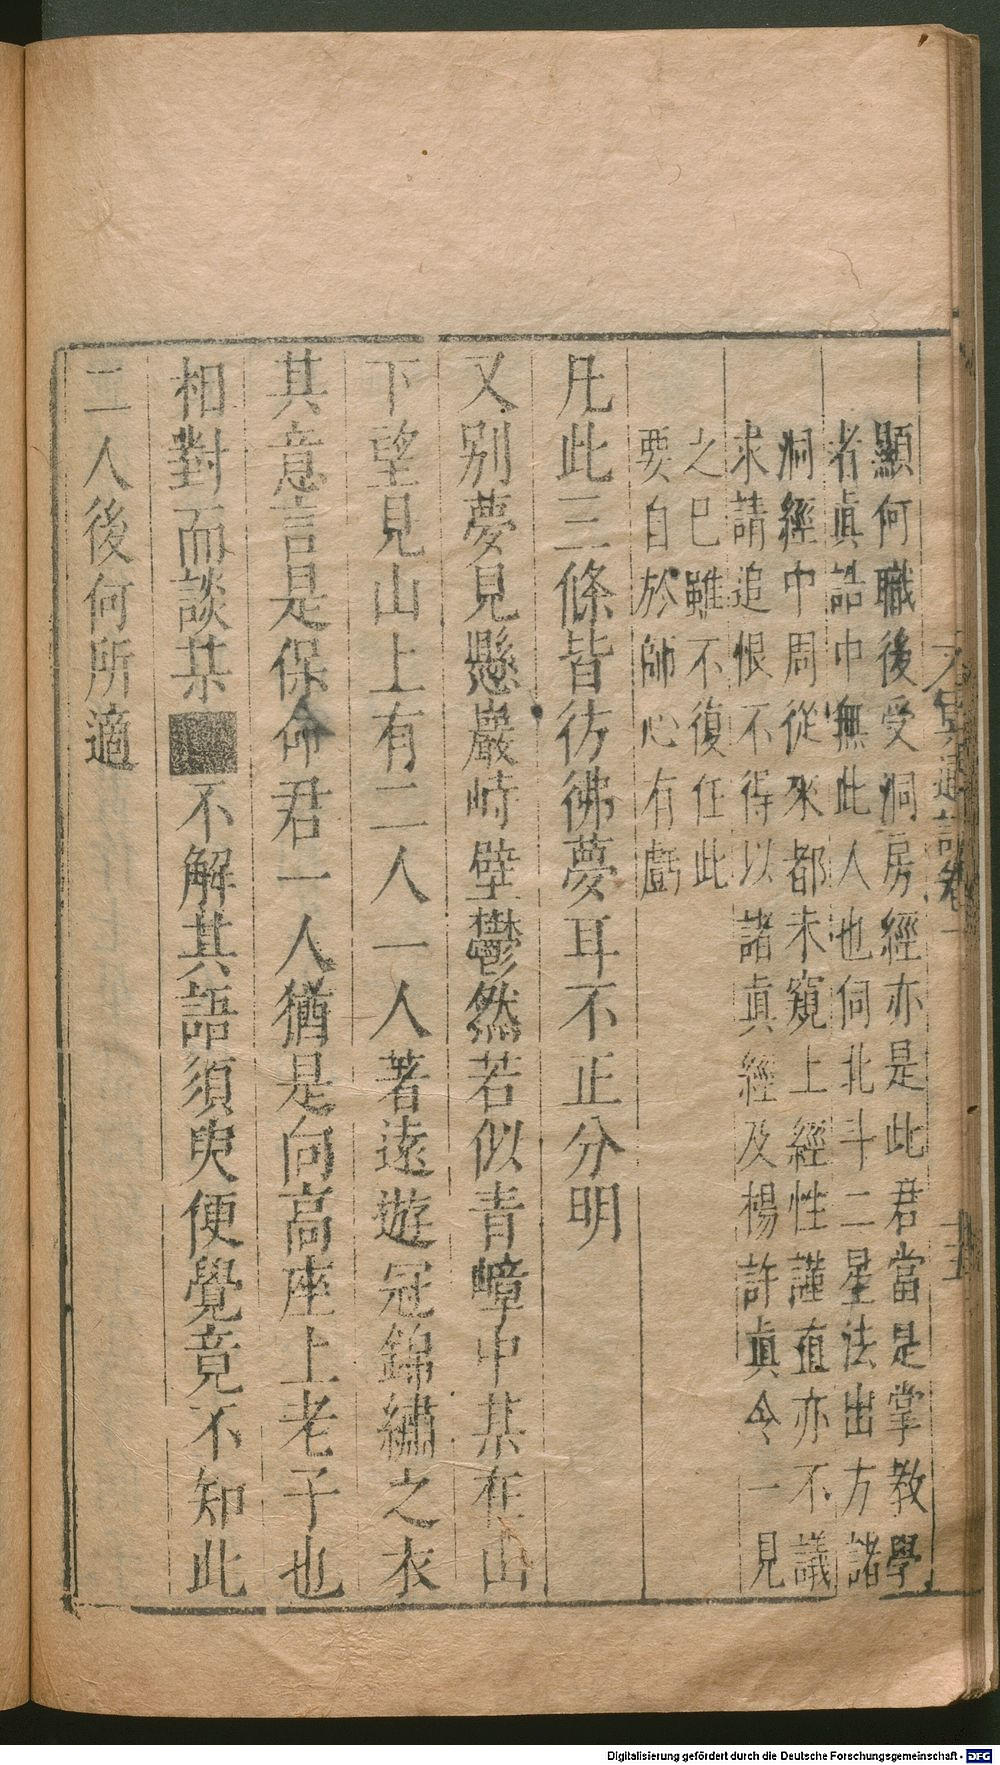 顯何職後受洞房經亦是此君當是掌教學
者眞誥中無此人也伺北斗二星法出方諸
洞經中周從來都未窺上經性謹直亦不議
求請追恨不得以諸眞經及楊許眞令一見
之巳雖不復任此
要自於師心有戲
凡此三條皆彷彿夢耳不正分明
又别夢見懸巖峙壁鬱然若似青嶂中某在山
下望見山上有二人一人著遠遊冠錦繡之衣
其意言是保命君一人猶是向高座上老子也
相對而談某不解其語須臾便覺竟不知此
二人後何所適
冥通記卷一
十五
Digitalisierung gefördert durch die Deutsche Forschungsgemeinschaft - DFG